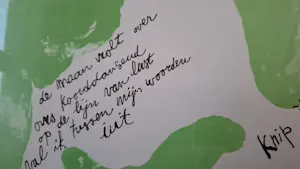 de maan rolt over
ons koorddansend
op de lijn van lust
val ik tussen mijn woorden
uit
Knip